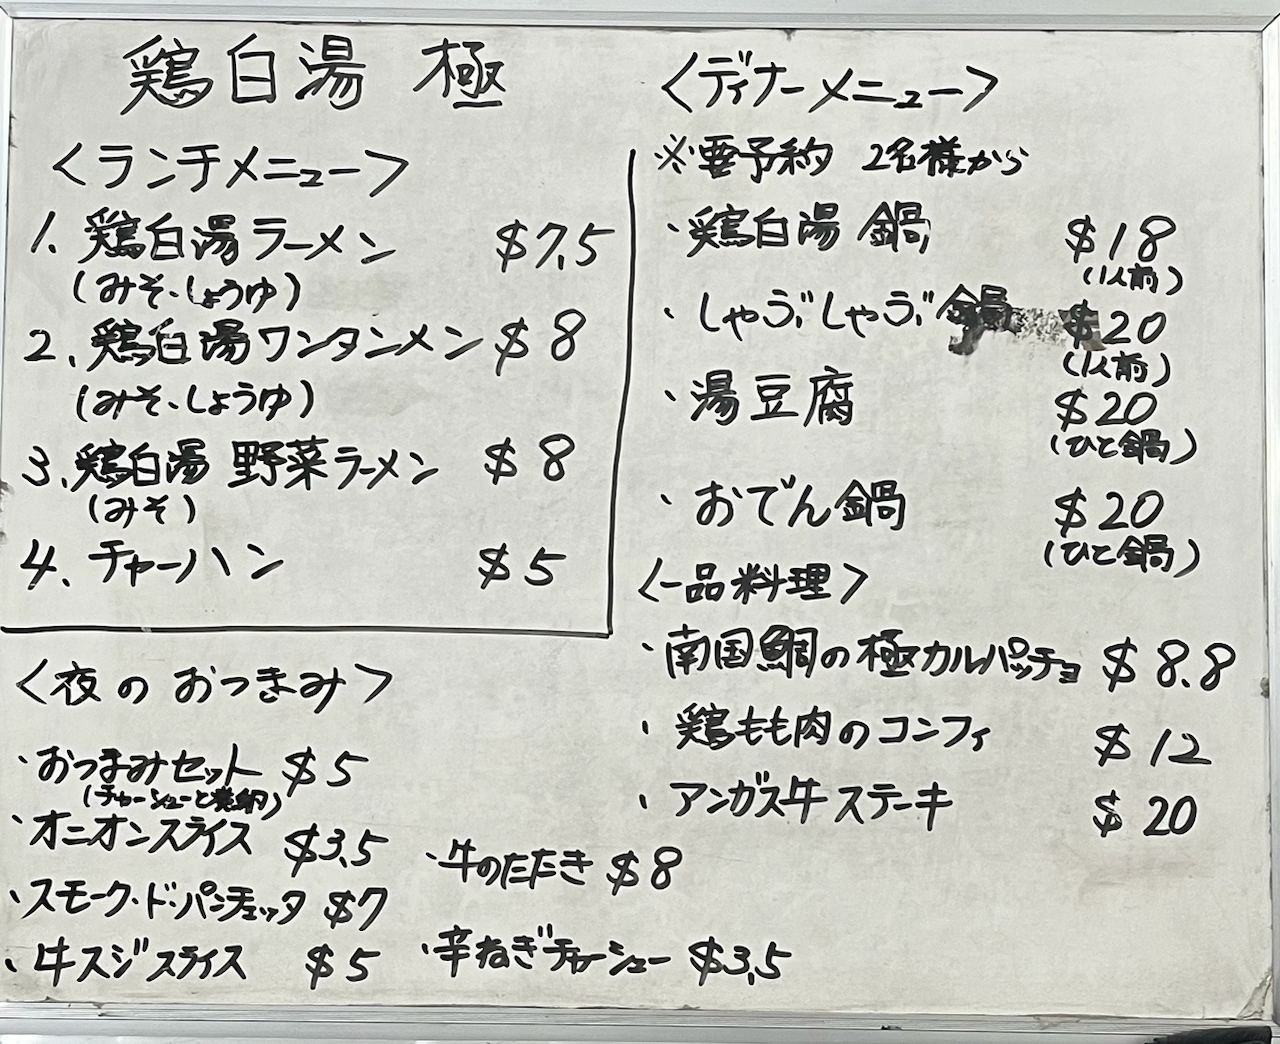 鶏白湯 極
<ランチメニュー>
1. 鶏白湯ラーメン $7.5
(みそ・しょうゆ)
2. 鶏白湯ワンタンメン $8
(みそ・しょうゆ)
3. 鶏白湯 野菜ラーメン $8
(みそ)
4. チャーハン $5
<夜のおつきみ>
・おつまみセット $5
(チャーシューと
・オニオンスライス $3.5
・スモーク・ド・パンチェッタ $7
・牛スジスライス $5
・牛のたたき $8
・辛ねぎチャーシュー $3.5
<ディナーメニュー>
※要予約 2名様から
・鶏白湯 鍋 $18
(1人前)
・しゃぶしゃぶ鍋 $20
(1人前)
・湯豆腐 $20
(ひと鍋)
・おでん鍋 $20
(ひと鍋)
<一品料理>
・南国鯛の極カルパッチョ $8.8
・鶏もも肉のコンフィ $12
・アンガス牛ステーキ $20